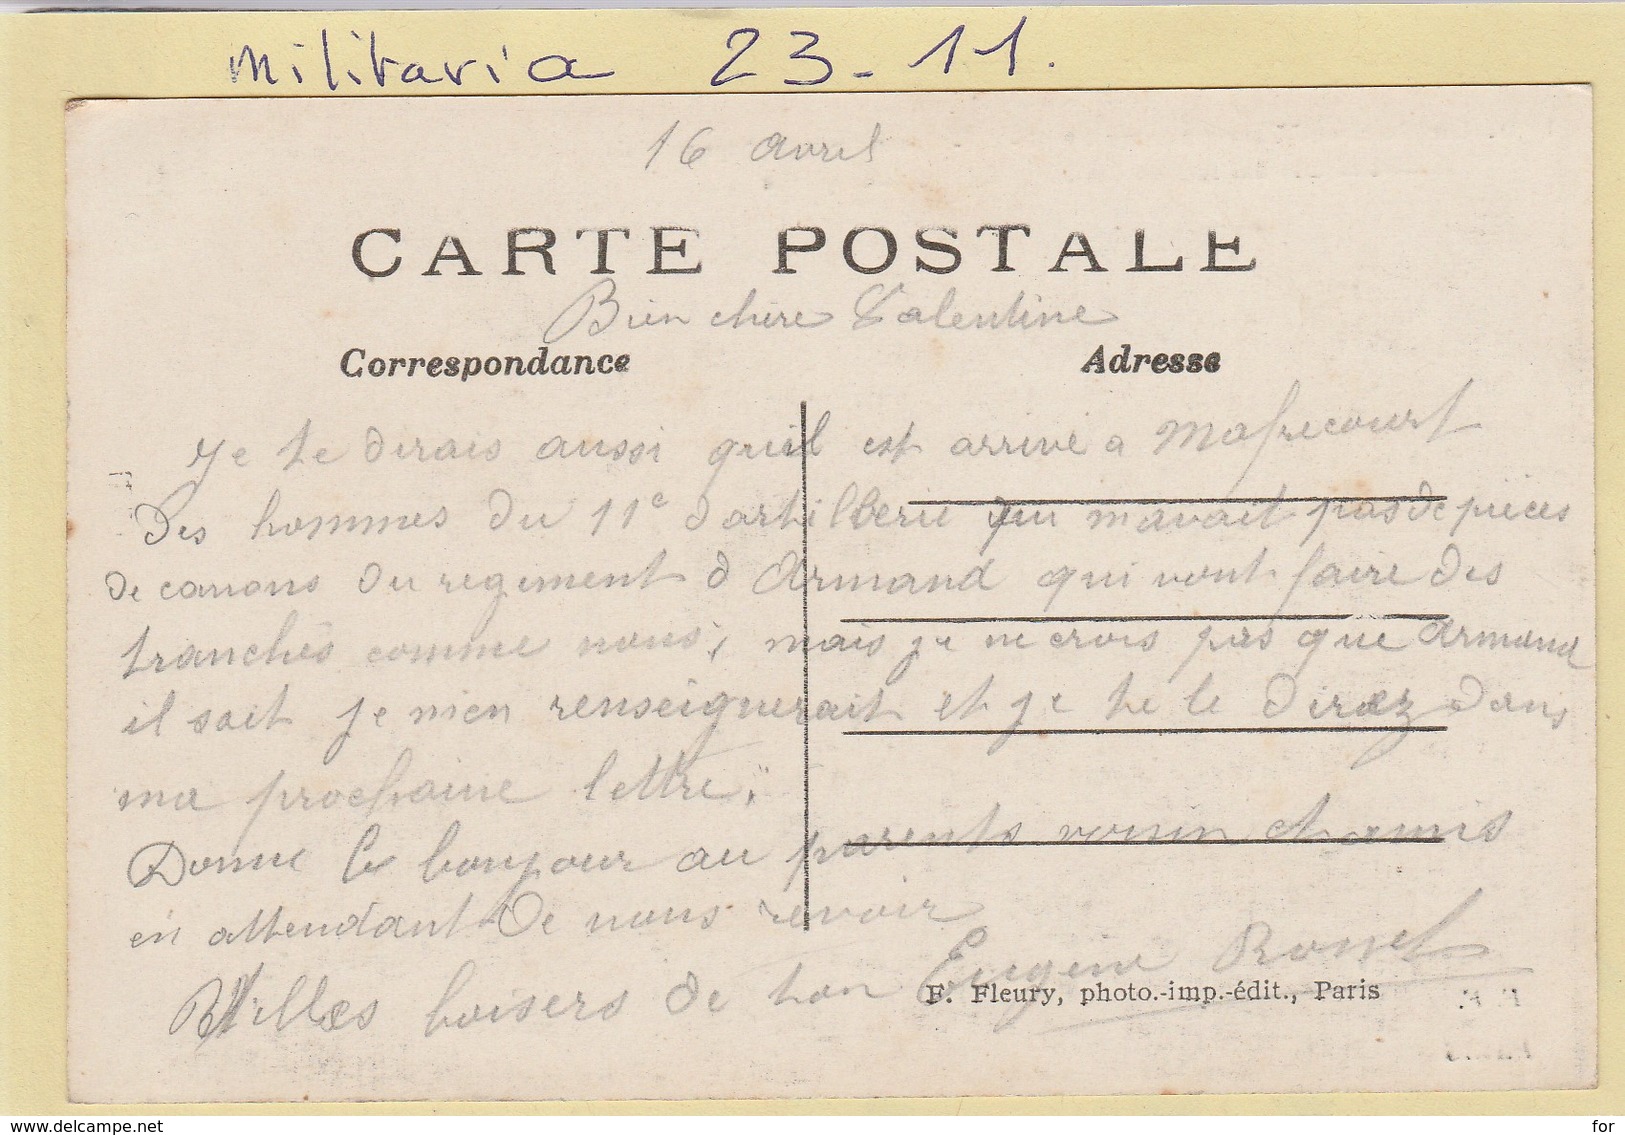 militaria 23-11.
16 avril
CARTE POSTALE
Bien chere Valentine
Correspondance
Adresse
Je te dirais aussi quil est arrivé a Mafrecourt
Des hommes du 11e dartillerie qui mavait pas de pièces
de canons du regiment d Armand qui vont faire des
tranchés comme nous, mais je ne crois pas que Armand
il soit je mien renseignerait et je te le direz dans
ma prochaine lettre.
Donne le bonjour au parents voisin et amis
en attendant de nous revoir
Milles baisers de ton Eugène
F. Fleury, photo.-imp.-édit., Paris
www.delcampe.net
for